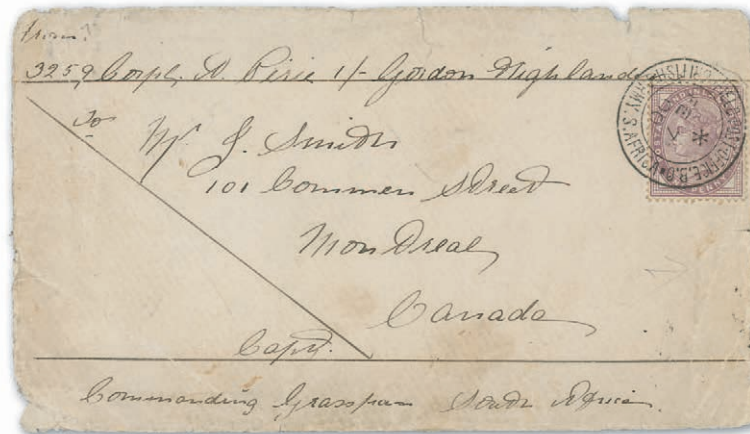 from
3259 Corpl. A. Pirie 1/- Gordon Highland
To
Mr J. Smith
101 Common Street
Montreal
Canada
Capt.
Commanding Graspan South Africa
FIELD POST OFFICE. B.O. BRITISH ARMY. S. AFRICA